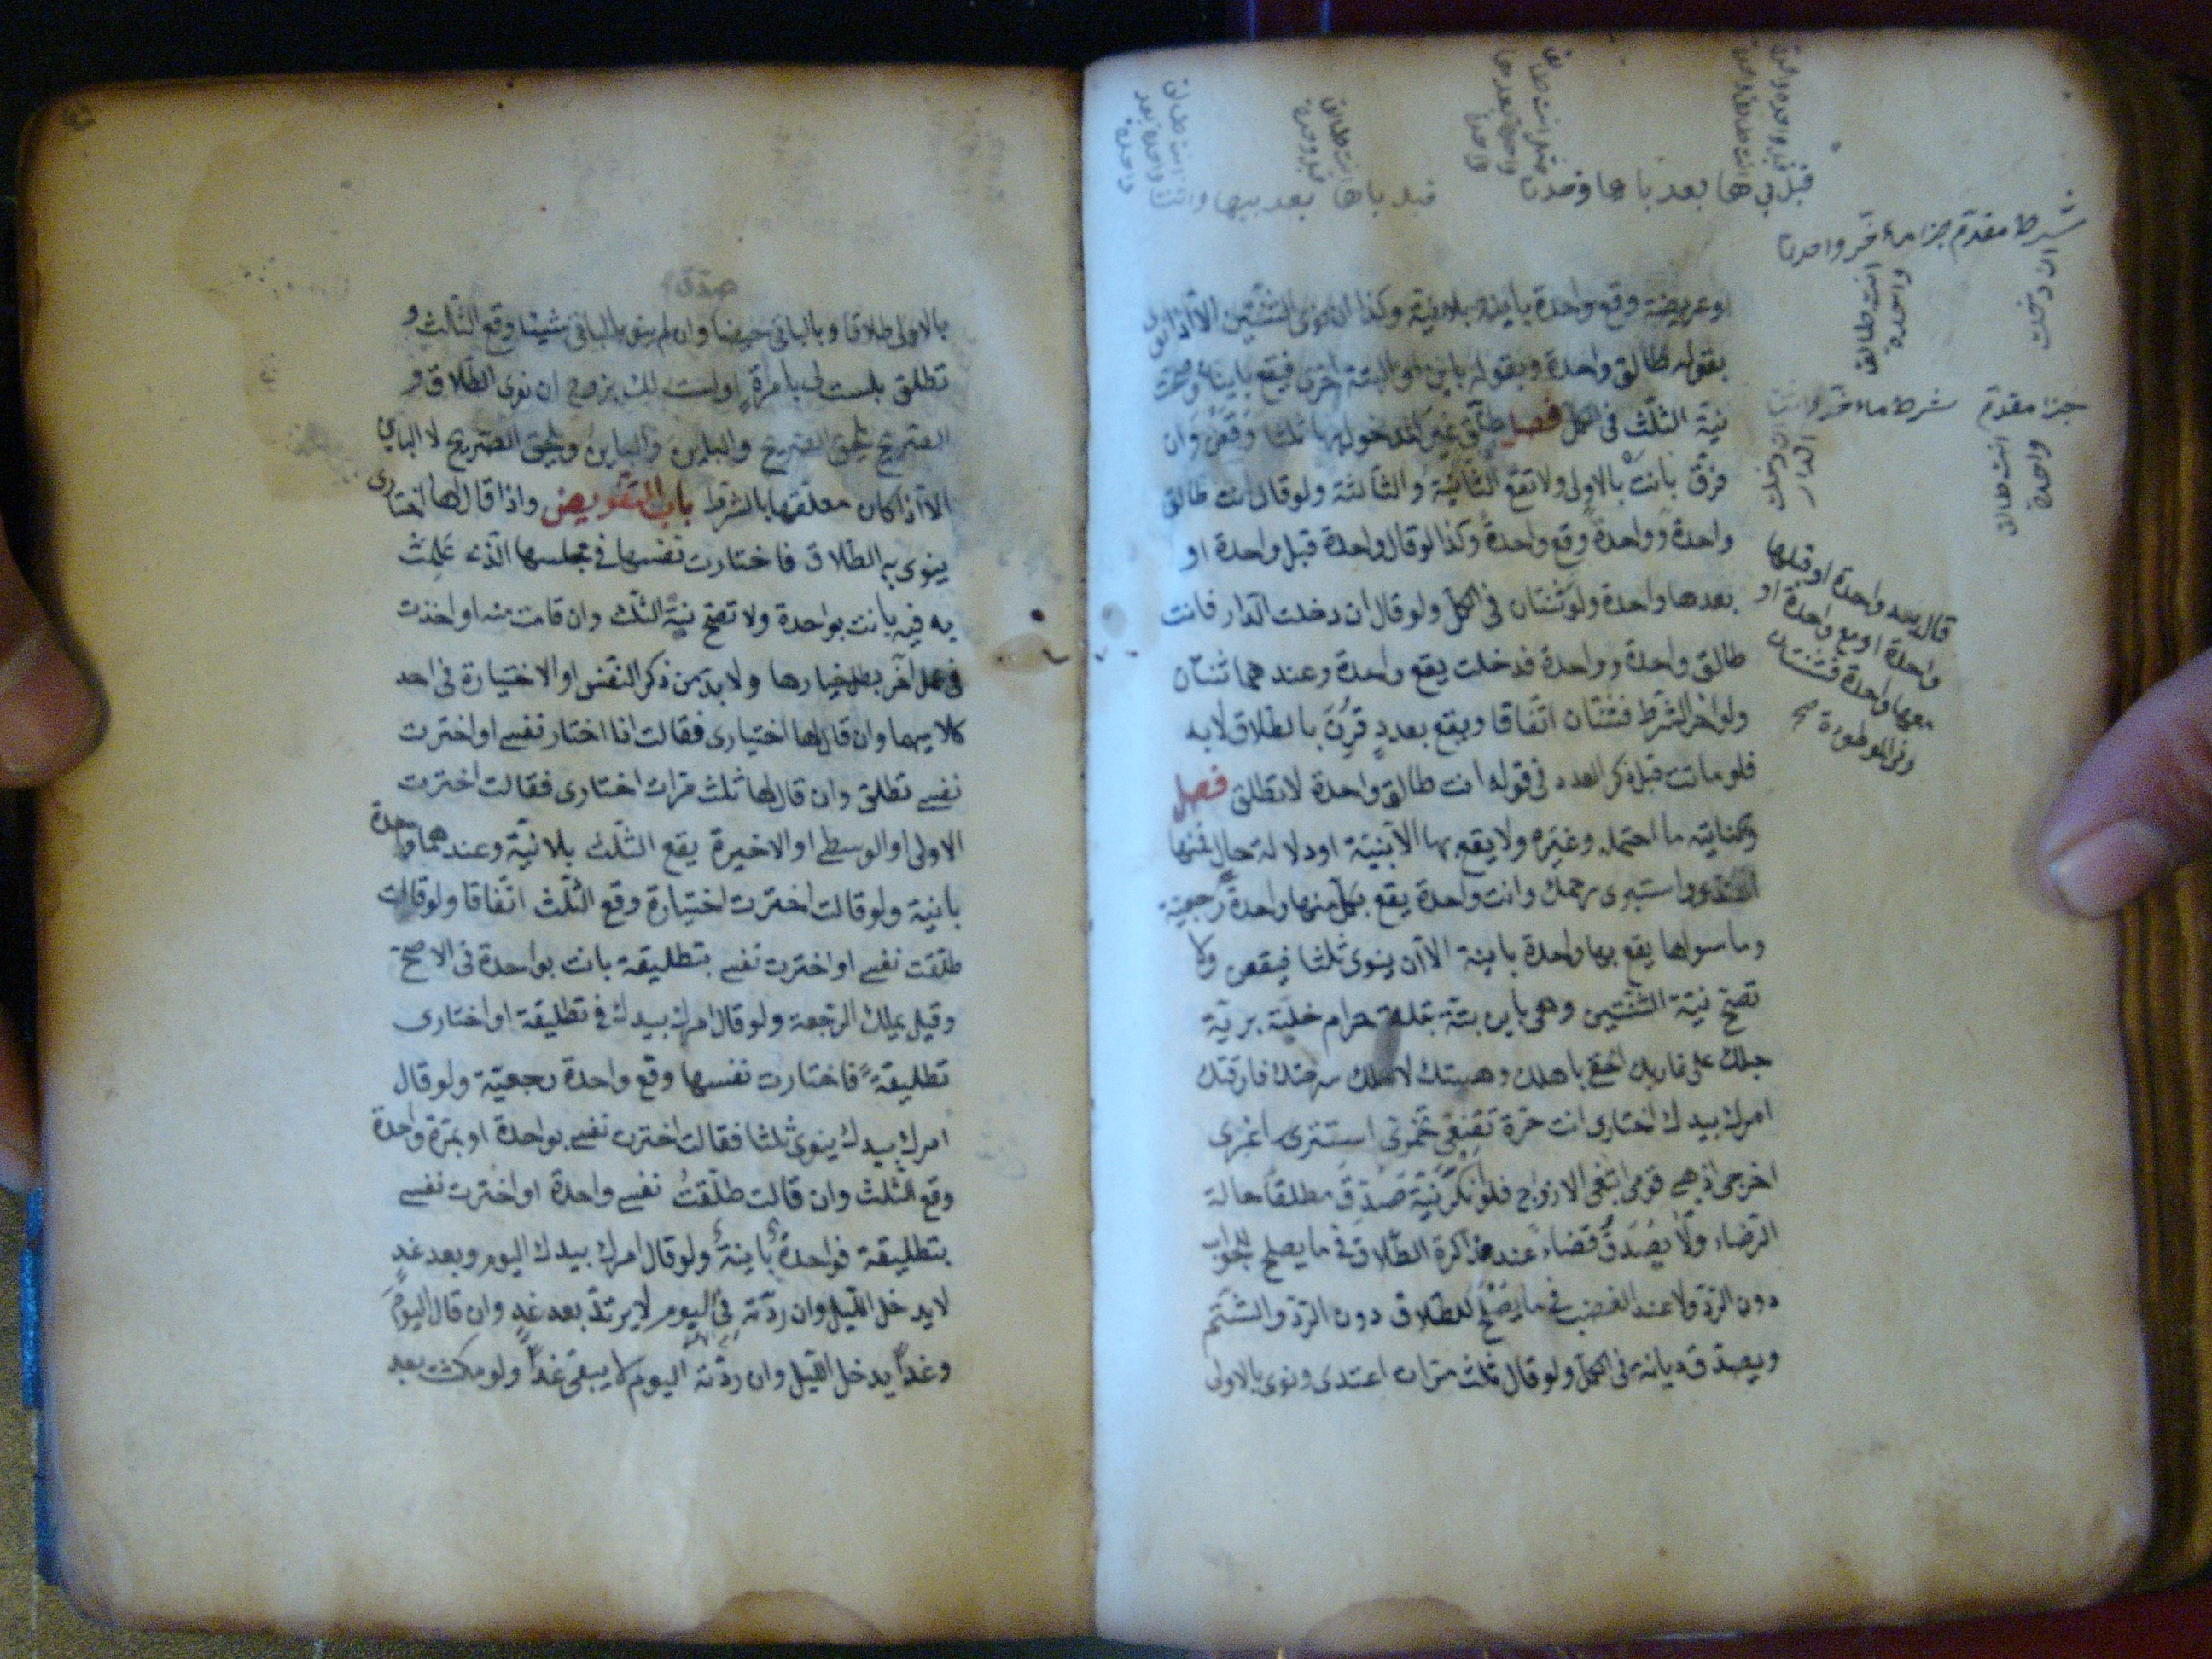 قبل بي ها بعد با ها وحدتا
قبل با ها بعد بيها واثنتا
انت طالق
واحدة بعد
واحدة
انت طالق
شرط مقدم جزا مأخر واحدتا
ان دخلت
انت طالق
واحدة
جزا مقدم شرط مأخر واثنتا
انت طالق
واحدة
ان دخلت
الدار
او عريضة وقع واحدة باينة بلا نية وكذا ان نوى الثنتين الا اذا نوى
بقوله طالق واحدة وبقوله باين او البتة اخرى فيقع باينان وصحت
نية الثلث في الكل فصل طلق غير المدخول بها ثلثا وقعن وان
فرق بانت بالاولى ولا تقع الثانية والثالثة ولو قال انت طالق
واحدة وواحدة وقع واحدة وكذا لو قال واحدة قبل واحدة او
بعدها واحدة ولو ثنتان في الكل ولو قال ان دخلت الدار فانت
طالق واحدة وواحدة فدخلت يقع واحدة وعندهما ثنتان
ولو اخر الشرط فثنتان اتفاقا ويقع بعدد قرن بالطلاق لا به
فلو ماتت قبل ذكر العدد في قوله انت طالق واحدة لا تطلق فصل
وكنايته ما احتمله وغيره ولا يقع بها الا بنية او دلالة حال فمنها
اعتدى واستبرى رحمك وانت واحدة يقع بكل منها واحدة رجعية
وما سواها يقع بها واحدة باينة الا ان ينوى ثلثا فيقعن ولا
تصح نية الثنتين وهى باين بتة بتلة حرام خلية برية
حبلك على غاربك الحقى باهلك وهبتك لاهلك سرحتك فارقتك
امرك بيدك اختارى انت حرة تقنعى تخمرى استترى اغربى
اخرجى اذهبى قومى ابتغى الازواج فلو انكر نية صدق مطلقا حالة
الرضاء ولا يصدق قضاء عند مذاكرة الطلاق في ما يصلح للجواب
دون الرد ولا عند الغضب في ما يصلح للطلاق دون الرد والشتم
ويصدق ديانة في الكل ولو قال ثلث مرات اعتدى ونوى بالاولى
قال بعد واحدة او قبلها
واحدة او مع واحدة او
معها واحدة فثنتان
وفي الموطوءة
صدق
بالاولى طلاقا وبالباقى حيضا وان لم ينو بالباقى شيئا وقع الثلث و
تطلق بلست لى بامرأة او لست لك بزوج ان نوى الطلاق و
الصريح يلحق الصريح والباين والباين يلحق الصريح لا الباين
الا اذا كان معلقها بالشرط باب التفويض واذا قال لها اختارى
ينوى به الطلاق فاختارت نفسها في مجلسها الذى علمت
به فيه بانت بواحدة ولا تصح نية الثلث وان قامت منه او اخذت
في عمل آخر بطل خيارها ولا بد من ذكر النفس او الاختيارة في احد
كلاميهما وان قال لها اختيارى فقالت انا اختار نفسى او اخترت
نفسى تطلق وان قال لها ثلث مرات اختارى فقالت اخترت
الاولى او الوسطى او الاخيرة يقع الثلث بلا نية وعندهما واحدة
باينة ولو قالت اخترت اختيارة وقع الثلث اتفاقا ولو قالت
طلقت نفسى او اخترت نفسى بتطليقة بانت بواحدة في الاصح
وقيل يملك الرجعة ولو قال امرك بيدك في تطليقة او اختارى
تطليقة فاختارت نفسها وقع واحدة رجعية ولو قال
امرك بيدك ينوى ثلثا فقالت اخترت نفسى بواحدة او بمرة واحدة
وقع الثلث وان قالت طلقت نفسى واحدة او اخترت نفسى
بتطليقة فواحدة باينة ولو قال امرك بيدك اليوم وبعد غد
لا يدخل الليل وان ردته في اليوم لا يرتد بعد غد وان قال اليوم
وغدا يدخل الليل وان ردته اليوم لا يبقى غدا ولو مكثت بعد